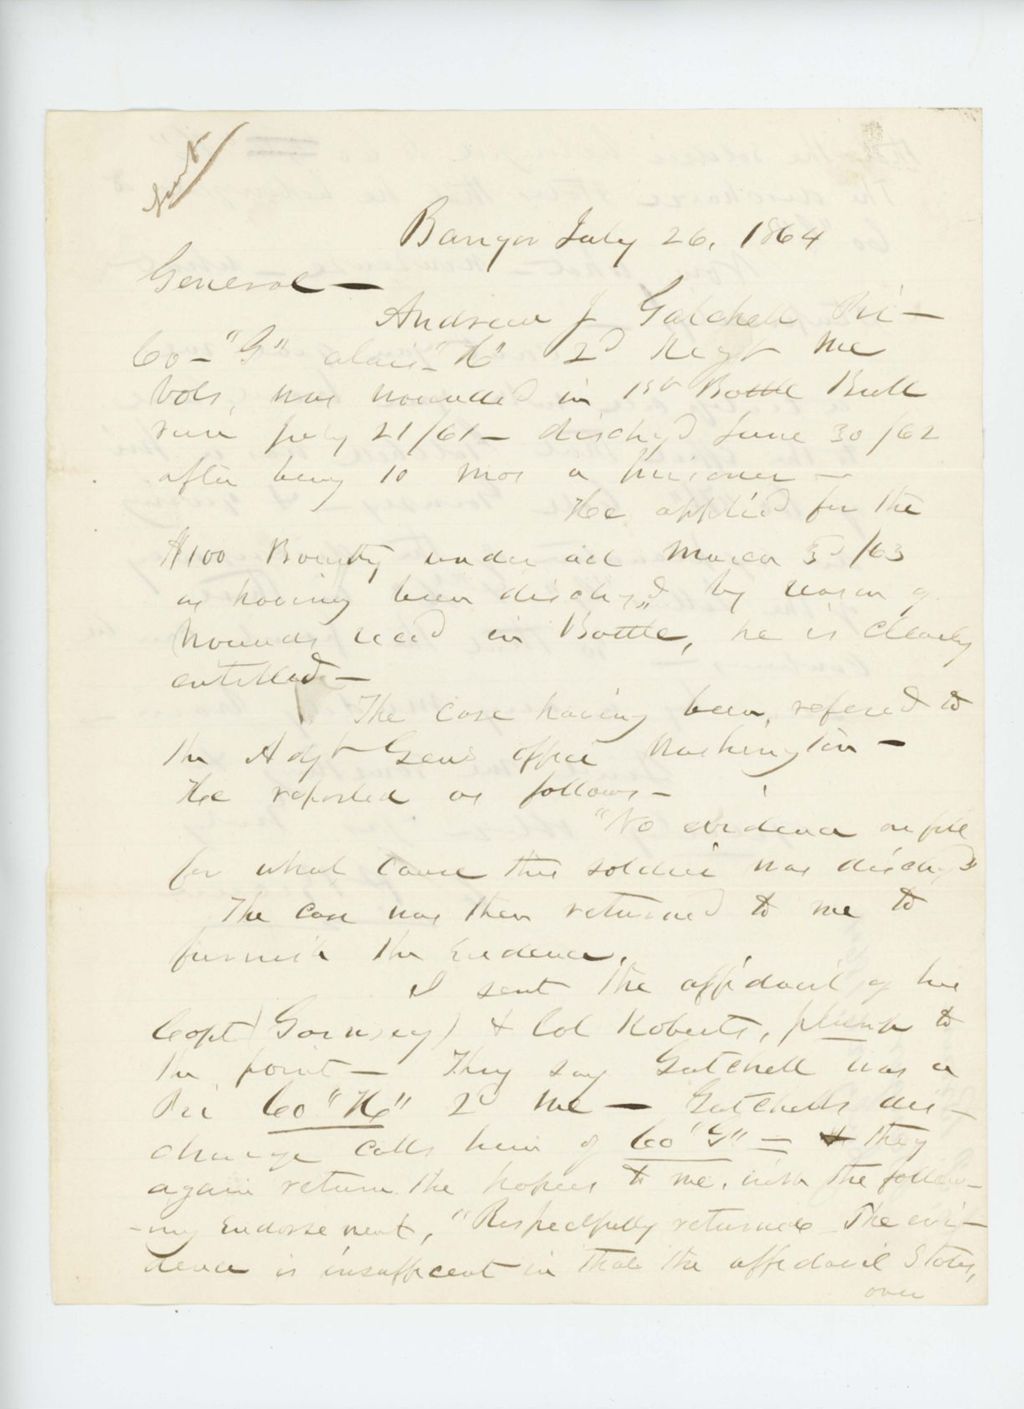 Bangor July 26, 1864
General —
Andrew J Gatchell Pri —
Co — "G" alais "K" 2d Regt Me
Vols, was wounded in 1st Battle Bull
run July 21/61 — dischgd June 30/62
after being 10 mos a prisoner —
He applied for the
$100 Bounty under act March 3d/63
as having been dischgd by reason of
wounds recd in Battle, he is clearly
entitled —
The case having been refered to
the Adjt Genls office Washington —
He reported as follows —
"No evidence on file
for what cause this soldier was dischgd"
The case was then returned to me to
furnish the Evidence.
I sent the affidavit of his
Capt (Garnsey) & Col Roberts, plump to
the point — They say Gatchell was a
Pri Co "K" 2d Me — Gatchells dis-
charge calls him of Co "G" — & they
again return the papers to me, with the follow-
-ing Endorsement, "Respectfully returned The evi-
dence is insufficent in that the affidavit States,
over